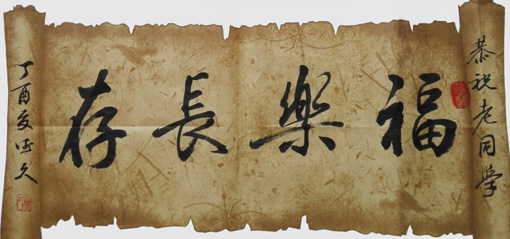 恭祝老同学
福樂長存
丁酉夏久